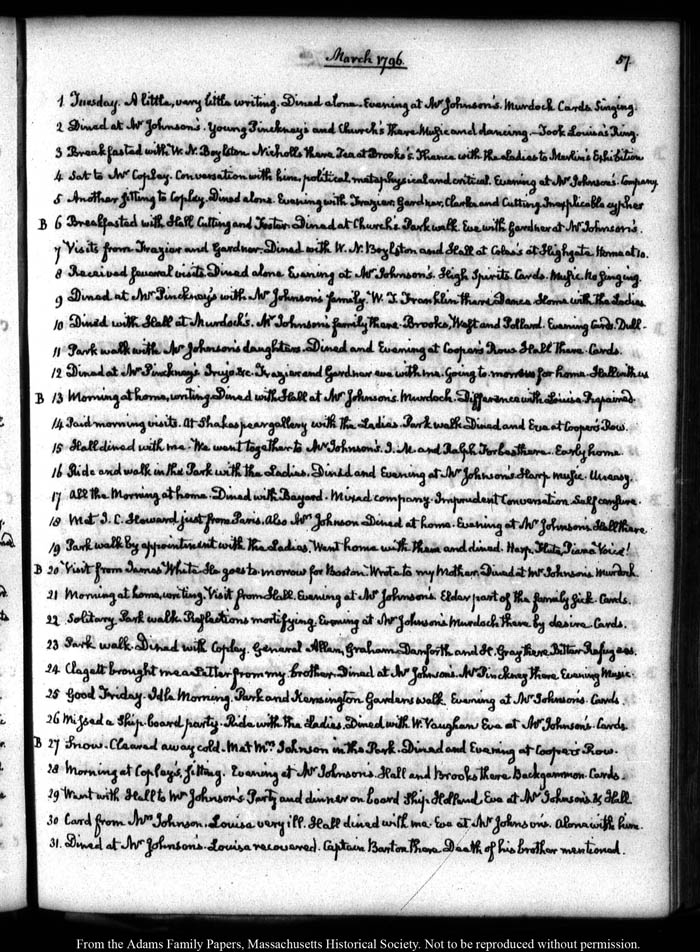 March 1796.
57
1 Tuesday. A little, very little writing. Dined alone. Evening at Mr Johnson's. Murdock Cards. Singing.
2 Dined at Mr Johnson's. Young Pinckney's and Church's there Music and dancing. Took Louisa's Ring.
3 Breakfasted with W. N. Boylston Nicholls there Tea at Brooks's. Thence with the Ladies to Merlin's Exhibition
4 Sat to Mr Copley. Conversation with him, political, metaphysical and critical. Evening at Mr Johnson's. Company
5 Another sitting to Copley. Dined alone. Evening with Frazier, Gardner, Clarke and Cutting. Inapplicable cypher
B 6 Breakfasted with Hall Cutting and Foster. Dined at Church's. Park walk. Eve with Gardner at Mr Johnson's.
7 Visits from Frazier and Gardner. Dined with W. N. Boylston and Hall at Coles's at Highgate. Home at 10.
8 Received several visits Dined alone. Evening at Mr Johnson's. High Spirits. Cards. Music. No singing.
9 Dined at Mr Pinckney's with Mr Johnson's family. W. T. Franklin there. Dance Home with the Ladies
10 Dined with Hall at Murdock's. Mr Johnson's family there. Brooks, West and Pollard. Evening Cards. Dull.
11 Park walk with Mr Johnson's daughters. Dined and Evening at Cooper's Row. Hall there. Cards.
12 Dined at Mr Pinckney's &c. Frazier and Gardner eve with me. Going to morrow for home. Hall with us
B 13 Morning at home, writing. Dined with Hall at Mr Johnson's. Murdoch. Difference with Louisa
14 Paid morning visits. At Shakespear gallery with the Ladies. Park walk Dined and Eve at Cooper's Row.
15 Hall dined with me. We went together to Mr Johnson's. J. M. and Ralph Forbes there. Early home
16 Ride and walk in the Park with the Ladies. Dined and Evening at Mr Johnson's Harp music. Uneasy.
17 All the Morning at home. Dined with Bayard. Mixed company. Imprudent Conversation. Self censure.
18 Met J. C. Howard just from Paris. Also Mrs Johnson Dined at home. Evening at Mr Johnson's. Hall there
19 Park walk by appointment with the Ladies. Went home with them and dined. Harp, Flute, Piano Voice!
B 20 Visit from James White. He goes to-morrow for Boston. Wrote to my Mother. Dined at Mr Johnson's Murdock
21 Morning at home, writing. Visit from Hall. Evening at Mr Johnson's. Elder part of the family sick. Cards.
22 Solitary Park walk. Reflections mortifying. Evening at Mr Johnson's Murdoch there by desire. Cards.
23 Park walk. Dined with Copley. General Allan, Graham, Danforth and St. Gray there Bitter Refugees.
24 Clagett brought me a Letter from my brother. Dined at Mr Johnson's. Mr Pinckney there Evening Music.
25 Good Friday. Idle Morning. Park and Kensington Gardens walk. Evening at Mr Johnson's. Cards.
26 Missed a Ship-board party. Ride with the Ladies. Dined with W. Vaughan Eve at Mr Johnson's. Cards
B 27 Snow. Cleared away cold. Met Mrs Johnson in the Park. Dined and Evening at Cooper's Row.
28 Morning at Copley's, sitting. Evening at Mr Johnson's. Hall and Brooks there Backgammon. Cards.
29 Went with Hall to Mr Johnson's Party and dinner on board Ship Holland. Eve at Mr Johnson's. Hall.
30 Card from Mrs Johnson. Louisa very ill. Hall dined with me. Eve at Mr Johnson's. Alone with him.
31. Dined at Mr Johnson's. Louisa recovered. Captain Barton there Death of his brother mentioned.
From the Adams Family Papers, Massachusetts Historical Society. Not to be reproduced without permission.